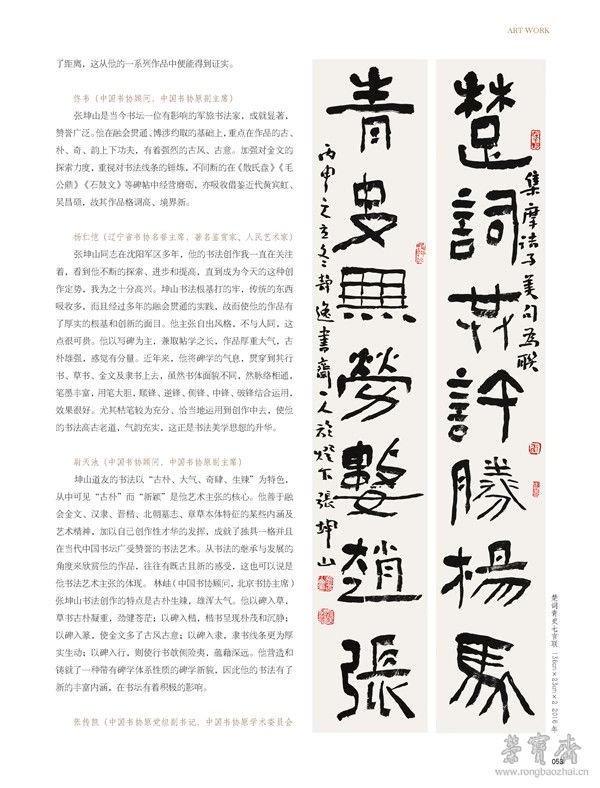 ART WORK
了距离，这从他的一系列作品中便能得到证实。
佟韦（中国书协顾问、中国书协原副主席）
张坤山是当今书坛一位有影响的军旅书法家，成就显著，
赞誉广泛。他在融会贯通、博涉约取的基础上，重点在作品的古、
朴、奇、韵上下功夫，有着强烈的古风、古意。加强对金文的
探索力度，重视对书法线条的锤炼，不间断的在《散氏盘》《毛
公鼎》《石鼓文》等碑帖中经营磨砺，亦吸收借鉴近代黄宾虹、
吴昌硕，故其作品格调高、境界新。
杨仁恺（辽宁省书协名誉主席、著名鉴赏家、人民艺术家）
张坤山同志在沈阳军区多年，他的书法创作我一直在关注
着，看到他不断的探索、进步和提高，直到成为今天的这种创
作定势，我为之十分高兴。坤山书法根基打的牢，传统的东西
吸收多，而且经过多年的融会贯通的实践，故而使他的作品有
了厚实的根基和创新的面目。他主张自出风格，不与人同，这
点很可贵。他以写碑为主，兼取帖学之长，作品厚重大气，古
朴雄强，感觉有分量。近年来，他将碑学的气息，贯穿到其行
书、草书、金文及隶书上去，虽然书体面貌不同，然脉络相通，
笔墨丰富，用笔大胆，顺锋、逆锋、侧锋、中锋、破锋结合运用，
效果很好。尤其枯笔较为充分、恰当地运用到创作中去，使他
的书法高古老道，气韵充实，这正是书法美学思想的升华。
尉天池（中国书协顾问、中国书协原副主席）
坤山道友的书法以“古朴、大气、奇肆、生辣”为特色，
从中可见“古朴”而“新颖”是他艺术主张的核心。他善于融
会金文、汉隶、晋楷、北朝墓志、章草本体特征的某些内涵及
艺术精神，加以自己创作性才华的发挥，成就了独具一格并且
在当代中国书坛广受赞誉的书法艺术。从书法的继承与发展的
角度来欣赏他的作品，往往有既古且新的感受，这也可以说是
他书法艺术主张的体现。 林岫（中国书协顾问，北京书协主席）
张坤山书法创作的特点是古朴生辣，雄浑大气。他以碑入草，
草书古朴凝重，劲健苍茫；以碑入楷，楷书呈现朴茂和沉静；
以碑入篆，使金文多了古风古意；以碑入隶，隶书线条更为厚
实生动；以碑入行，则使行书欹侧险夷，蕴藉深远。他营造和
铸就了一种带有碑学体系性质的碑学新貌，因此他的书法有了
新的丰富内涵，在书坛有着积极的影响。
张传凯（中国书协原党组副书记、中国书协原学术委员会
楚詞共許勝楊馬
集摩诘子美句为联
青史無勞數趙張
丙申之立冬静逸書齋一人於燈下張坤山
楚词青史七言联 136cm×23cm×2 2016年
榮寶齋
053
www.rongbaozhai.cn